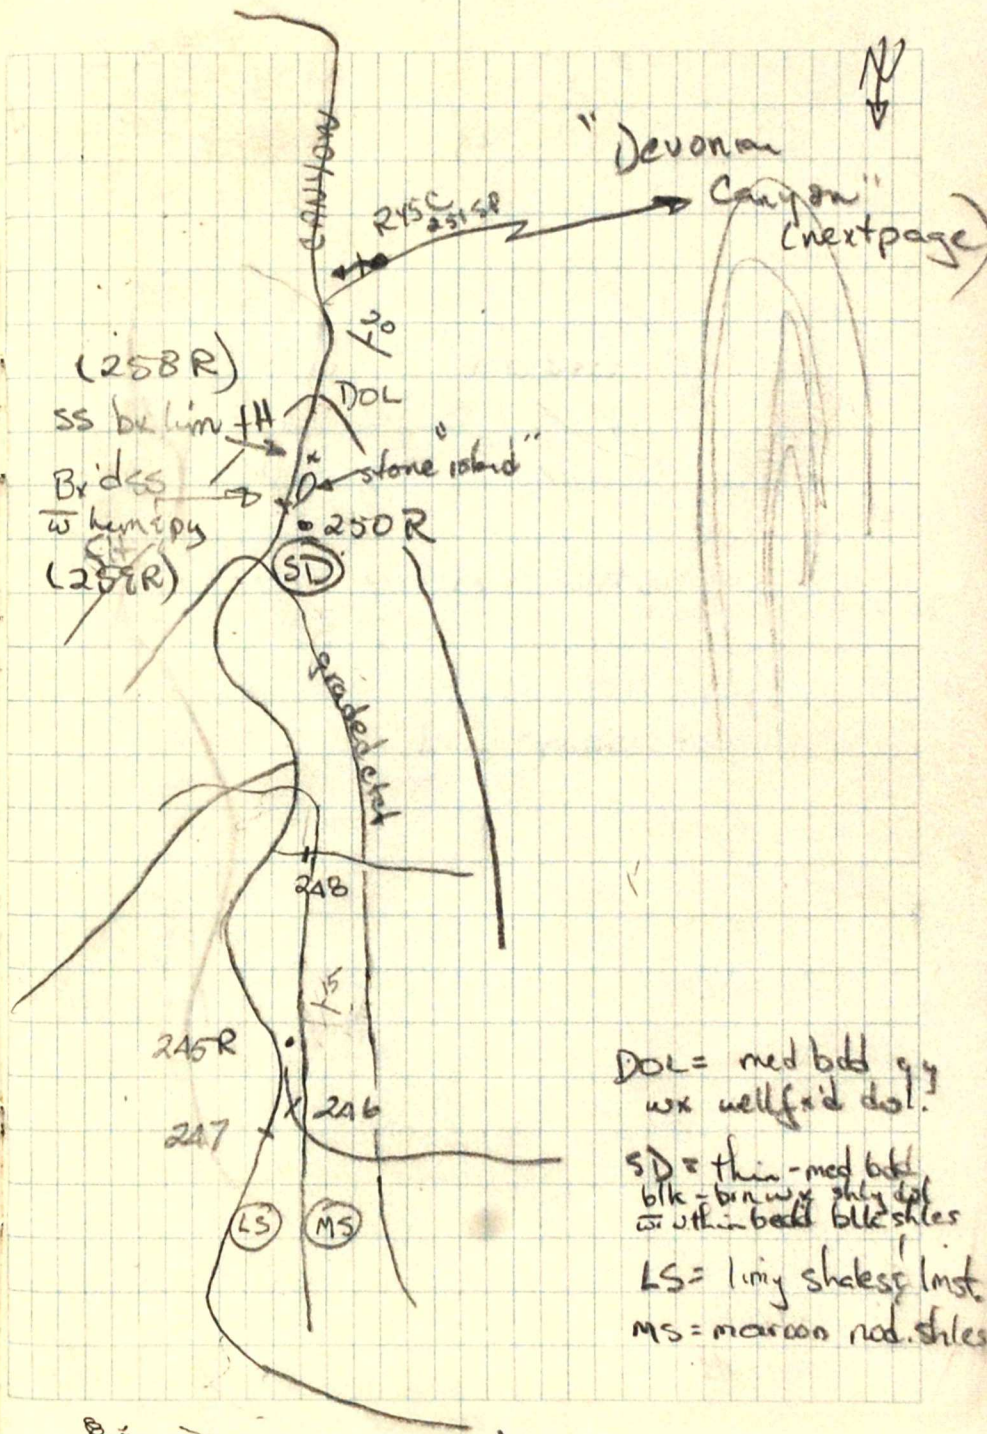 N
"Devonian
Canyon"
(next page)
CANYON
R45C
251 SP
30
(258 R)
DOL
SS bx lim + H
stone "island"
Bx'd SS
w̅ hem & py
250 R
(259R)
SD
graded ctct
248
15
245R
246
247
LS
MS
DOL = med bdd gy
wx well fx'd dol.
SD = thin-med bdd
blk - brn wx shly dol
w̅ v thin bedd blk shles
LS = limy shales & lmst.
MS = maroon nod. shles